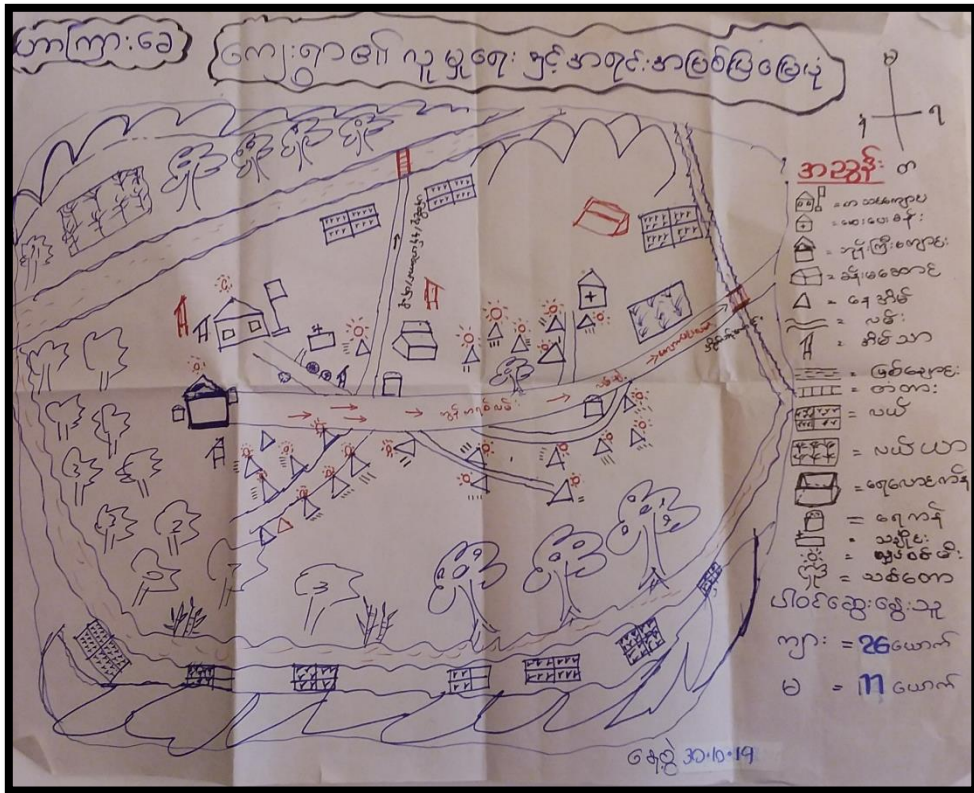 ဟာကြားခေ
ကျေးရွာ၏ လူမှုရေး နှင့်အရင်းအမြစ်ပြမြေပုံ
မ
န
ရ
တ
အညွှန်း
= စာသင်ကျောင်း
= ဆေးပေးခန်း
= ဘုန်းကြီးကျောင်း
= ခန်းမဆောင်
= နေအိမ်
= လမ်း
= အိမ်သာ
= မြစ်ချောင်း
= တံတား
= လယ်
= လယ်ယာ
= ရေလှောင်ကန်
= ရေကန်
= သချိုင်း
= လျှပ်စစ်မီး
= သစ်တော
ပါဝင်ဆွေးနွေးသူ
ကျား = 26 ယောက်
မ = 17 ယောက်
နေ့စွဲ 30.10.19